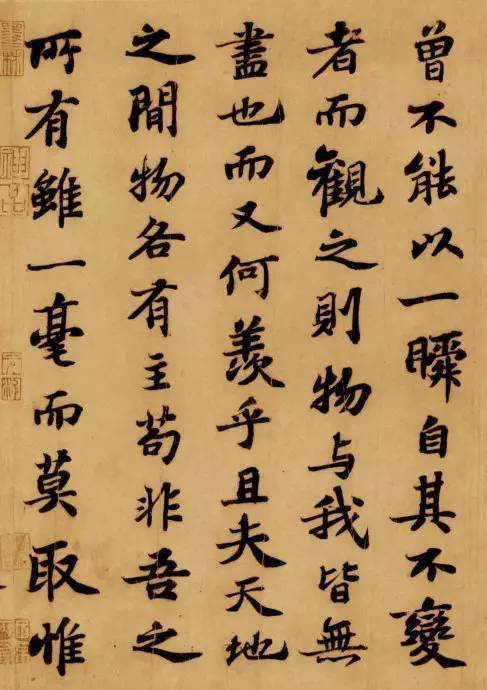 曾不能以一瞬自其不變
者而觀之則物与我皆無
盡也而又何羨乎且夫天地
之閒物各有主苟非吾之
所有雖一毫而莫取惟